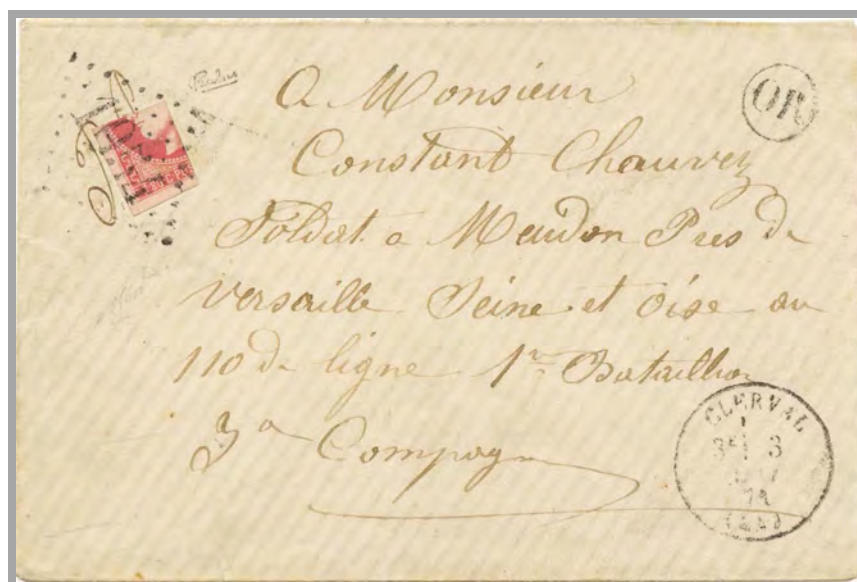 A Monsieur
OR
Constant Chauvez
Soldat a Meudon Pres de
versaille Seine et Oise au
110 de ligne 1er Bataillon
3a Compagn
CLERVAL
3E 3
71
(24)
80 C